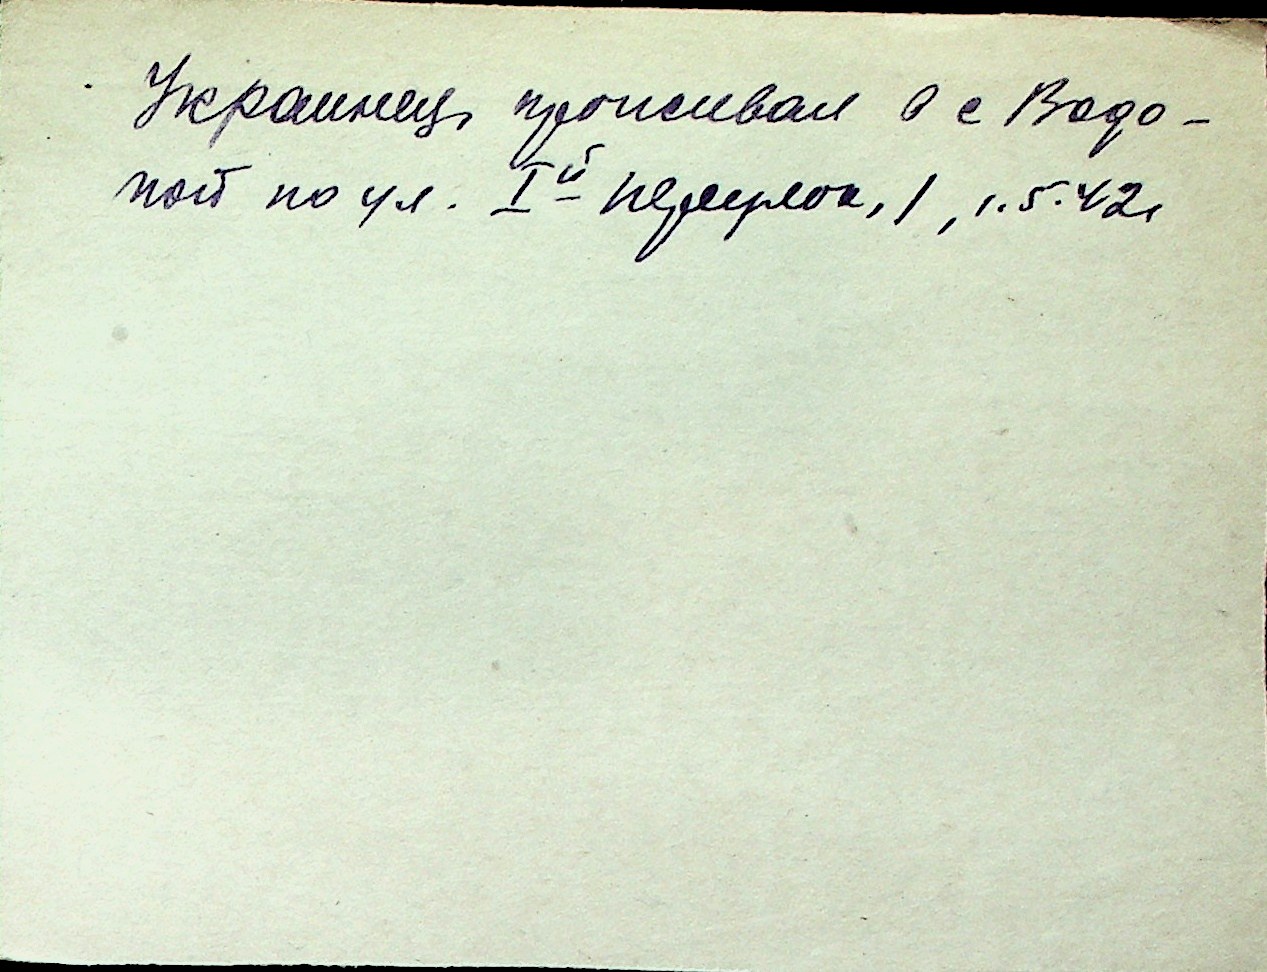 Украинец, проживал в с Водо-
пой по ул. Iй переулок, 1, 1.5.42г